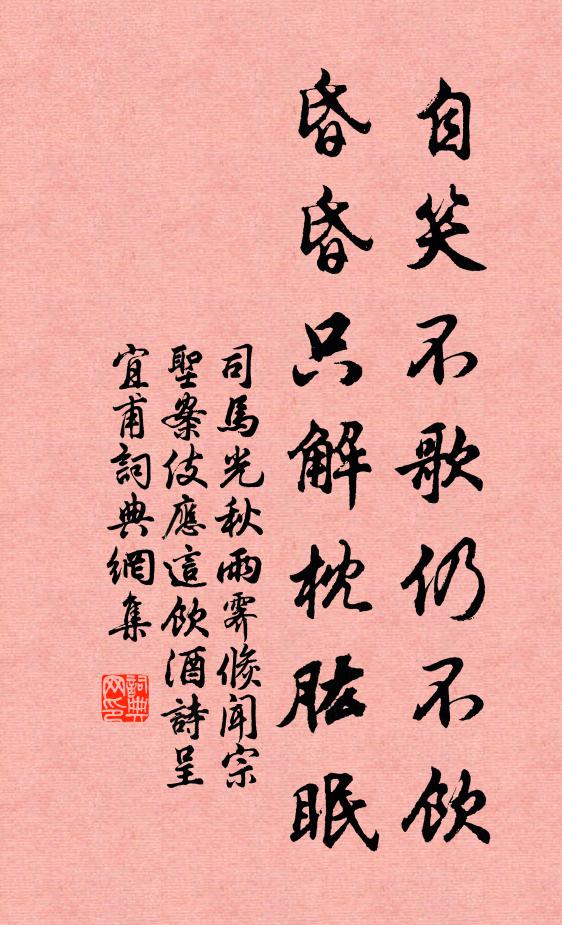 自笑不歌仍不飲
昏昏只解枕肱眠
司馬光秋雨霽倏聞宗
聖案伎應這飲酒詩呈
宜甫詞典網集
詞典网印